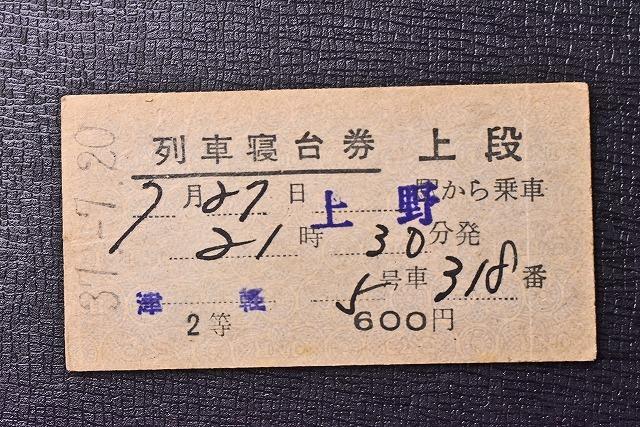 37.-7.20
列車寝台券 上段
7月27日 上野 駅から乗車
21時30分発
津軽 5号車318番
2等 600円